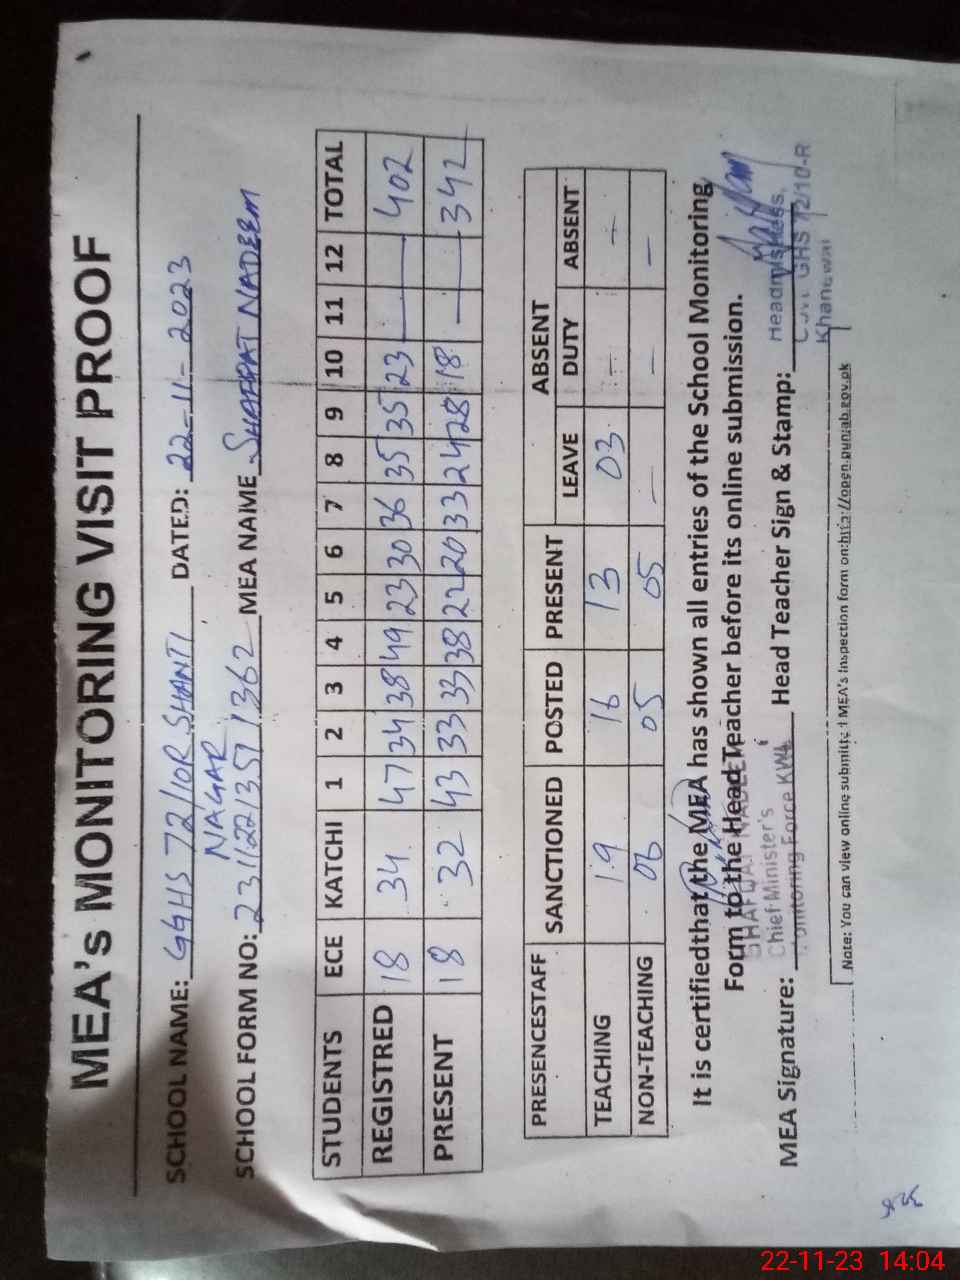 MEA's MONITORING VISIT PROOF
SCHOOL NAME: GGHS 72/10R SHANTI DATED: 22-11-2023
NAGAR
SCHOOL FORM NO: MEA NAME SHAFQAT NADEEM
STUDENTS ECE KATCHI 1 2 3 4 5 6 7 8 9 10 11 12 TOTAL
REGISTRED 18 34 47 34 38 49 23 30 36 35 35 23 — — 402
PRESENT 18 32 43 33 33 38 22 20 33 24 28 18 — — 342
PRESENCESTAFF SANCTIONED POSTED PRESENT ABSENT
LEAVE DUTY ABSENT
TEACHING 19 16 13 03 — —
NON-TEACHING 06 05 05 — — —
It is certifiedthat the MEA has shown all entries of the School Monitoring
Form to the Head Teacher before its online submission.
SHAFQAT NADEEM
Chief Minister's
Monitoring Force KWL
Headmistress,
Govt GHS 72/10-R
Khanewal
MEA Signature: Head Teacher Sign & Stamp:
Note: You can view online submitted MEA's Inspection form on:http://open.punjab.gov.pk
22-11-23 14:04